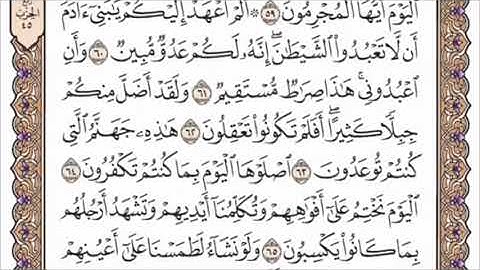 ٱلْيَوْمَ أَيُّهَا ٱلْمُجْرِمُونَ ٥٩ ۞ أَلَمْ أَعْهَدْ إِلَيْكُمْ يَٰبَنِىٓ ءَادَمَ
أَن لَّا تَعْبُدُوا۟ ٱلشَّيْطَٰنَ ۖ إِنَّهُۥ لَكُمْ عَدُوٌّ مُّبِينٌ ٦٠ وَأَنِ
ٱعْبُدُونِى ۚ هَٰذَا صِرَٰطٌ مُّسْتَقِيمٌ ٦١ وَلَقَدْ أَضَلَّ مِنكُمْ
جِبِلًّا كَثِيرًا ۖ أَفَلَمْ تَكُونُوا۟ تَعْقِلُونَ ٦٢ هَٰذِهِۦ جَهَنَّمُ ٱلَّتِى
كُنتُمْ تُوعَدُونَ ٦٣ ٱصْلَوْهَا ٱلْيَوْمَ بِمَا كُنتُمْ تَكْفُرُونَ ٦٤
ٱلْيَوْمَ نَخْتِمُ عَلَىٰٓ أَفْوَٰهِهِمْ وَتُكَلِّمُنَآ أَيْدِيهِمْ وَتَشْهَدُ أَرْجُلُهُم
بِمَا كَانُوا۟ يَكْسِبُونَ ٦٥ وَلَوْ نَشَآءُ لَطَمَسْنَا عَلَىٰٓ أَعْيُنِهِمْ
الحزب
٤٥